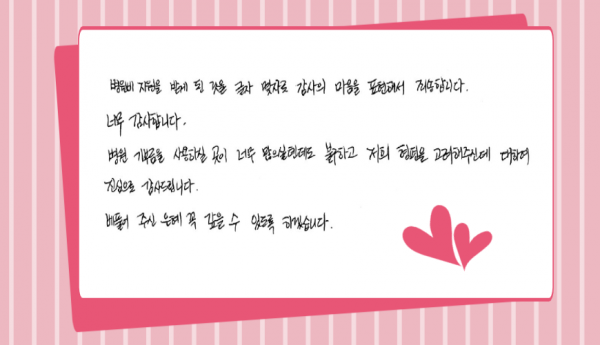 병원비 지원을 받게 된 것을 글자 몇자로 감사의 마음을 표현해서 죄송합니다.
너무 감사합니다.
병원 기부금을 사용하실 곳이 너무 많으실텐데도 불구하고 저희 형편을 고려해주신데 대하여
진심으로 감사드립니다.
베풀어 주신 은혜 꼭 갚을 수 있도록 하겠습니다.